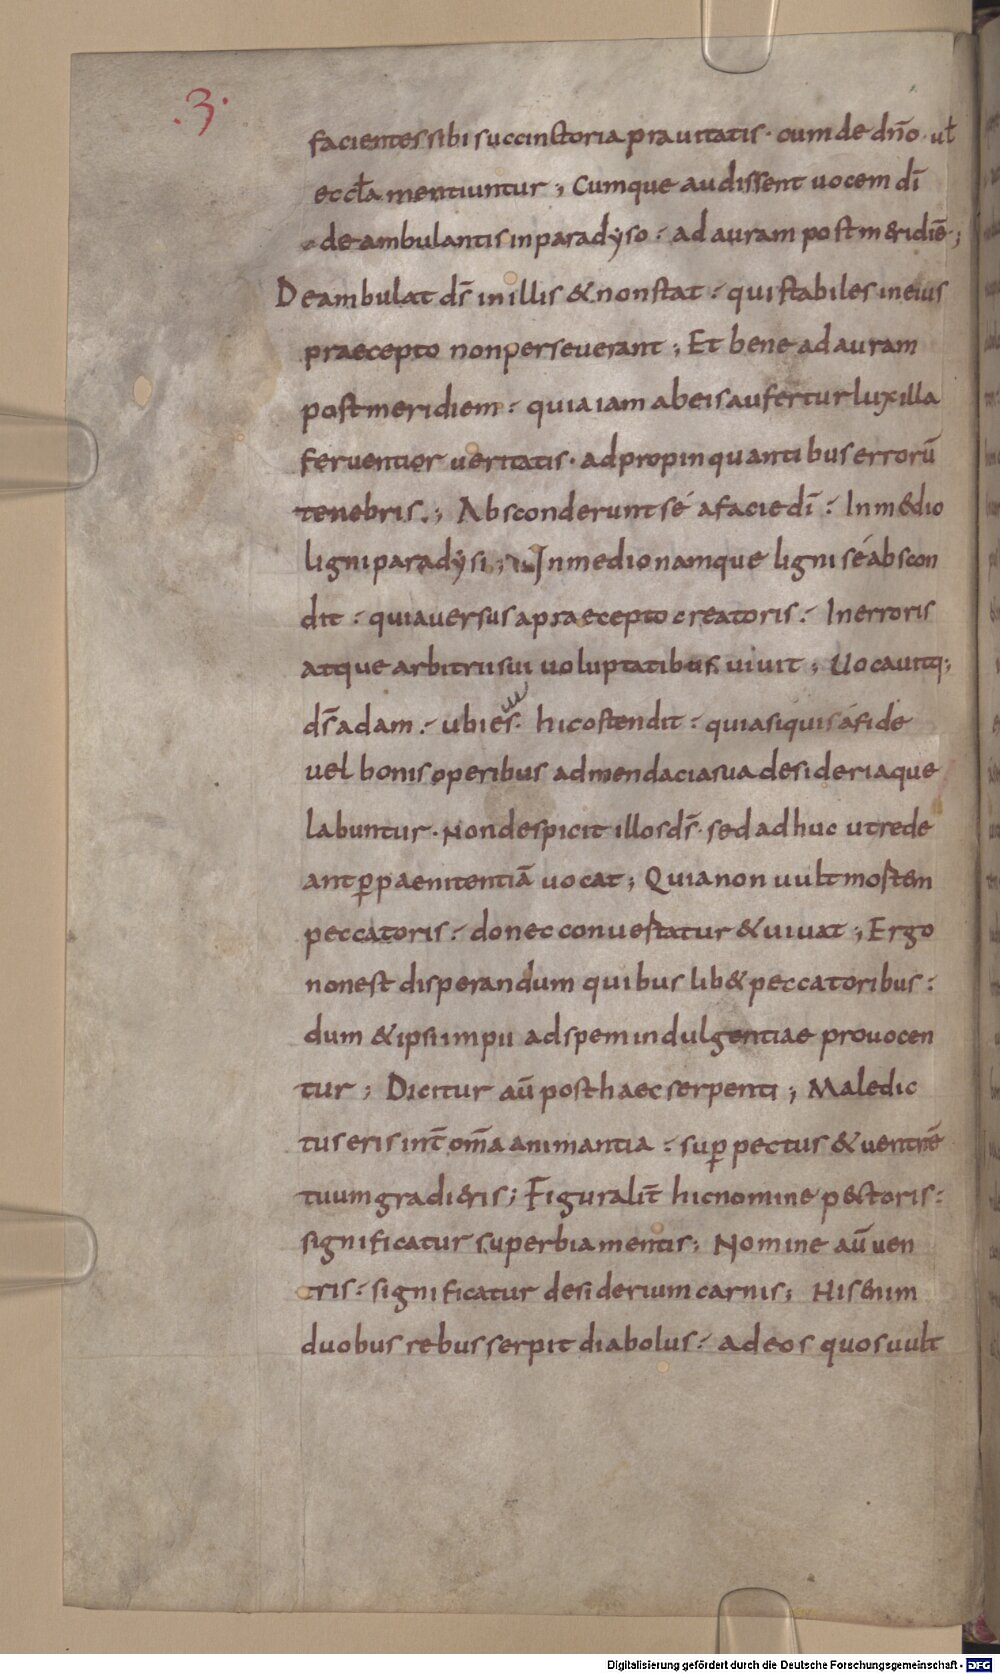 .3.
facientes sibi succinctoria prauitatis · cum de dño · uł
eccła mentiuntur ; Cumque audissent uocem dī
deambulantis in paradyso : ad auram post meridiē ;
Deambulat ds̄ in illis & non stat : qui stabiles in eius
praecepto non perseuerant ; Et bene ad auram
post meridiem : quia iam ab eis aufertur lux illa
feruentior ueritatis · adpropinquantibus errorū
tenebris ; Absconderunt sé a facie dī : In medio
ligni paradysi ; In medio namque ligni sé abscon
dit : quia uersus a praecepto creatoris : In erroris
atque arbitrii sui uoluptatibus uiuit ; Uocauitq;
ds̄ adam : ubi es · hic ostendit : quia si quis á fide
uel bonis operibus ad mendacia sua desideriaque
labuntur · Non despicit illos ds̄ · sed adhuc ut rede
ant ꝑ paenitentiā uocat ; Quia non uult mortem
peccatoris : donec conuertatur & uiuat ; Ergo
non est disperandum quibuslib& peccatoribus :
dum & ipsi impii ad spem indulgentiae prouocen
tur ; Dicitur aū post haec serpenti ; Maledic
tus eris int̄ om̄a animantia : suꝑ pectus & uentrē
tuum gradieris ; Figuralit̄ hic nomine pectoris :
significatur superbia mentis ; Nomine aū uen
tris : significatur desiderium carnis ; His enim
duobus rebus serpit diabolus : ad eos quos uult
Digitalisierung gefördert durch die Deutsche Forschungsgemeinschaft - DFG